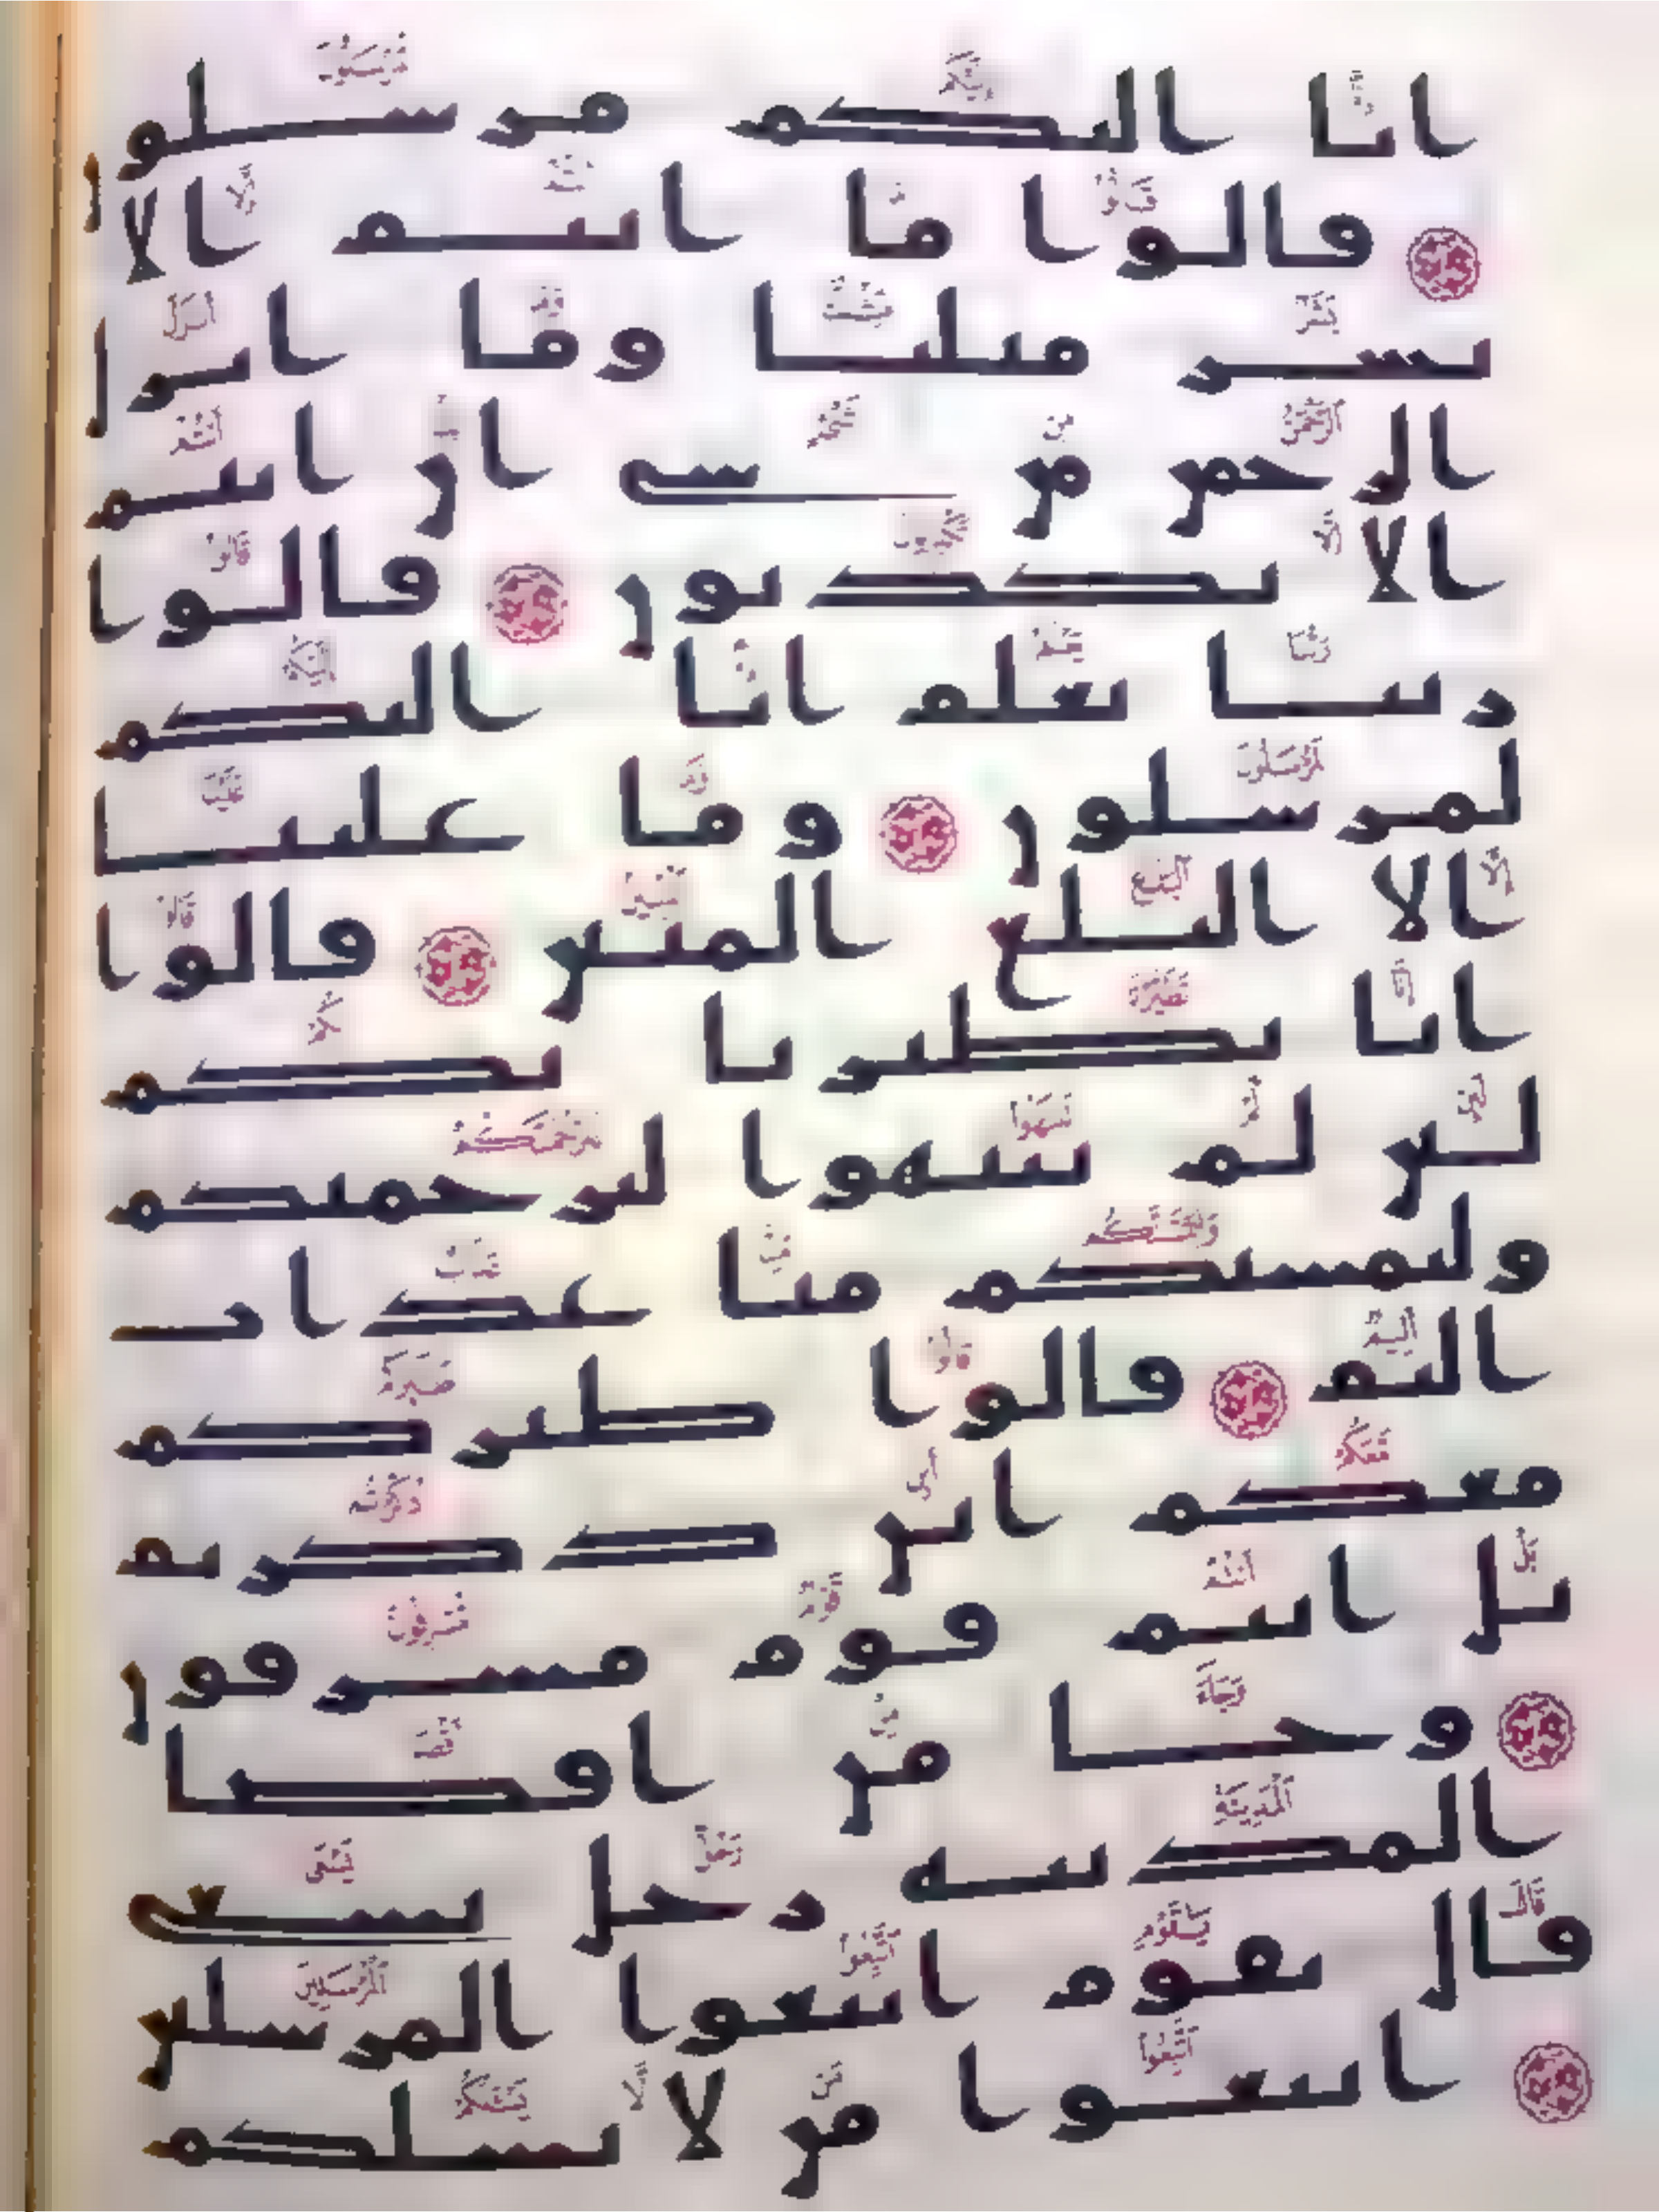 انا اليكم مرسلون
قالوا ما انتم الا
بشر مثلنا وما انزل
الرحمن من شى ان انتم
الا تكذبون قالوا
ربنا يعلم انا اليكم
لمرسلون وما علينا
الا البلغ المبين قالوا
انا تطيرنا بكم
لئن لم تنتهوا لنرجمنكم
وليمسنكم منا عذاب
اليم قالوا طيركم
معكم اين ذكرتم
بل انتم قوم مسرفون
وجا من اقصا
المدينه رجل يسعى
قال يقوم اتبعوا المرسلين
اتبعوا من لا يسلكم